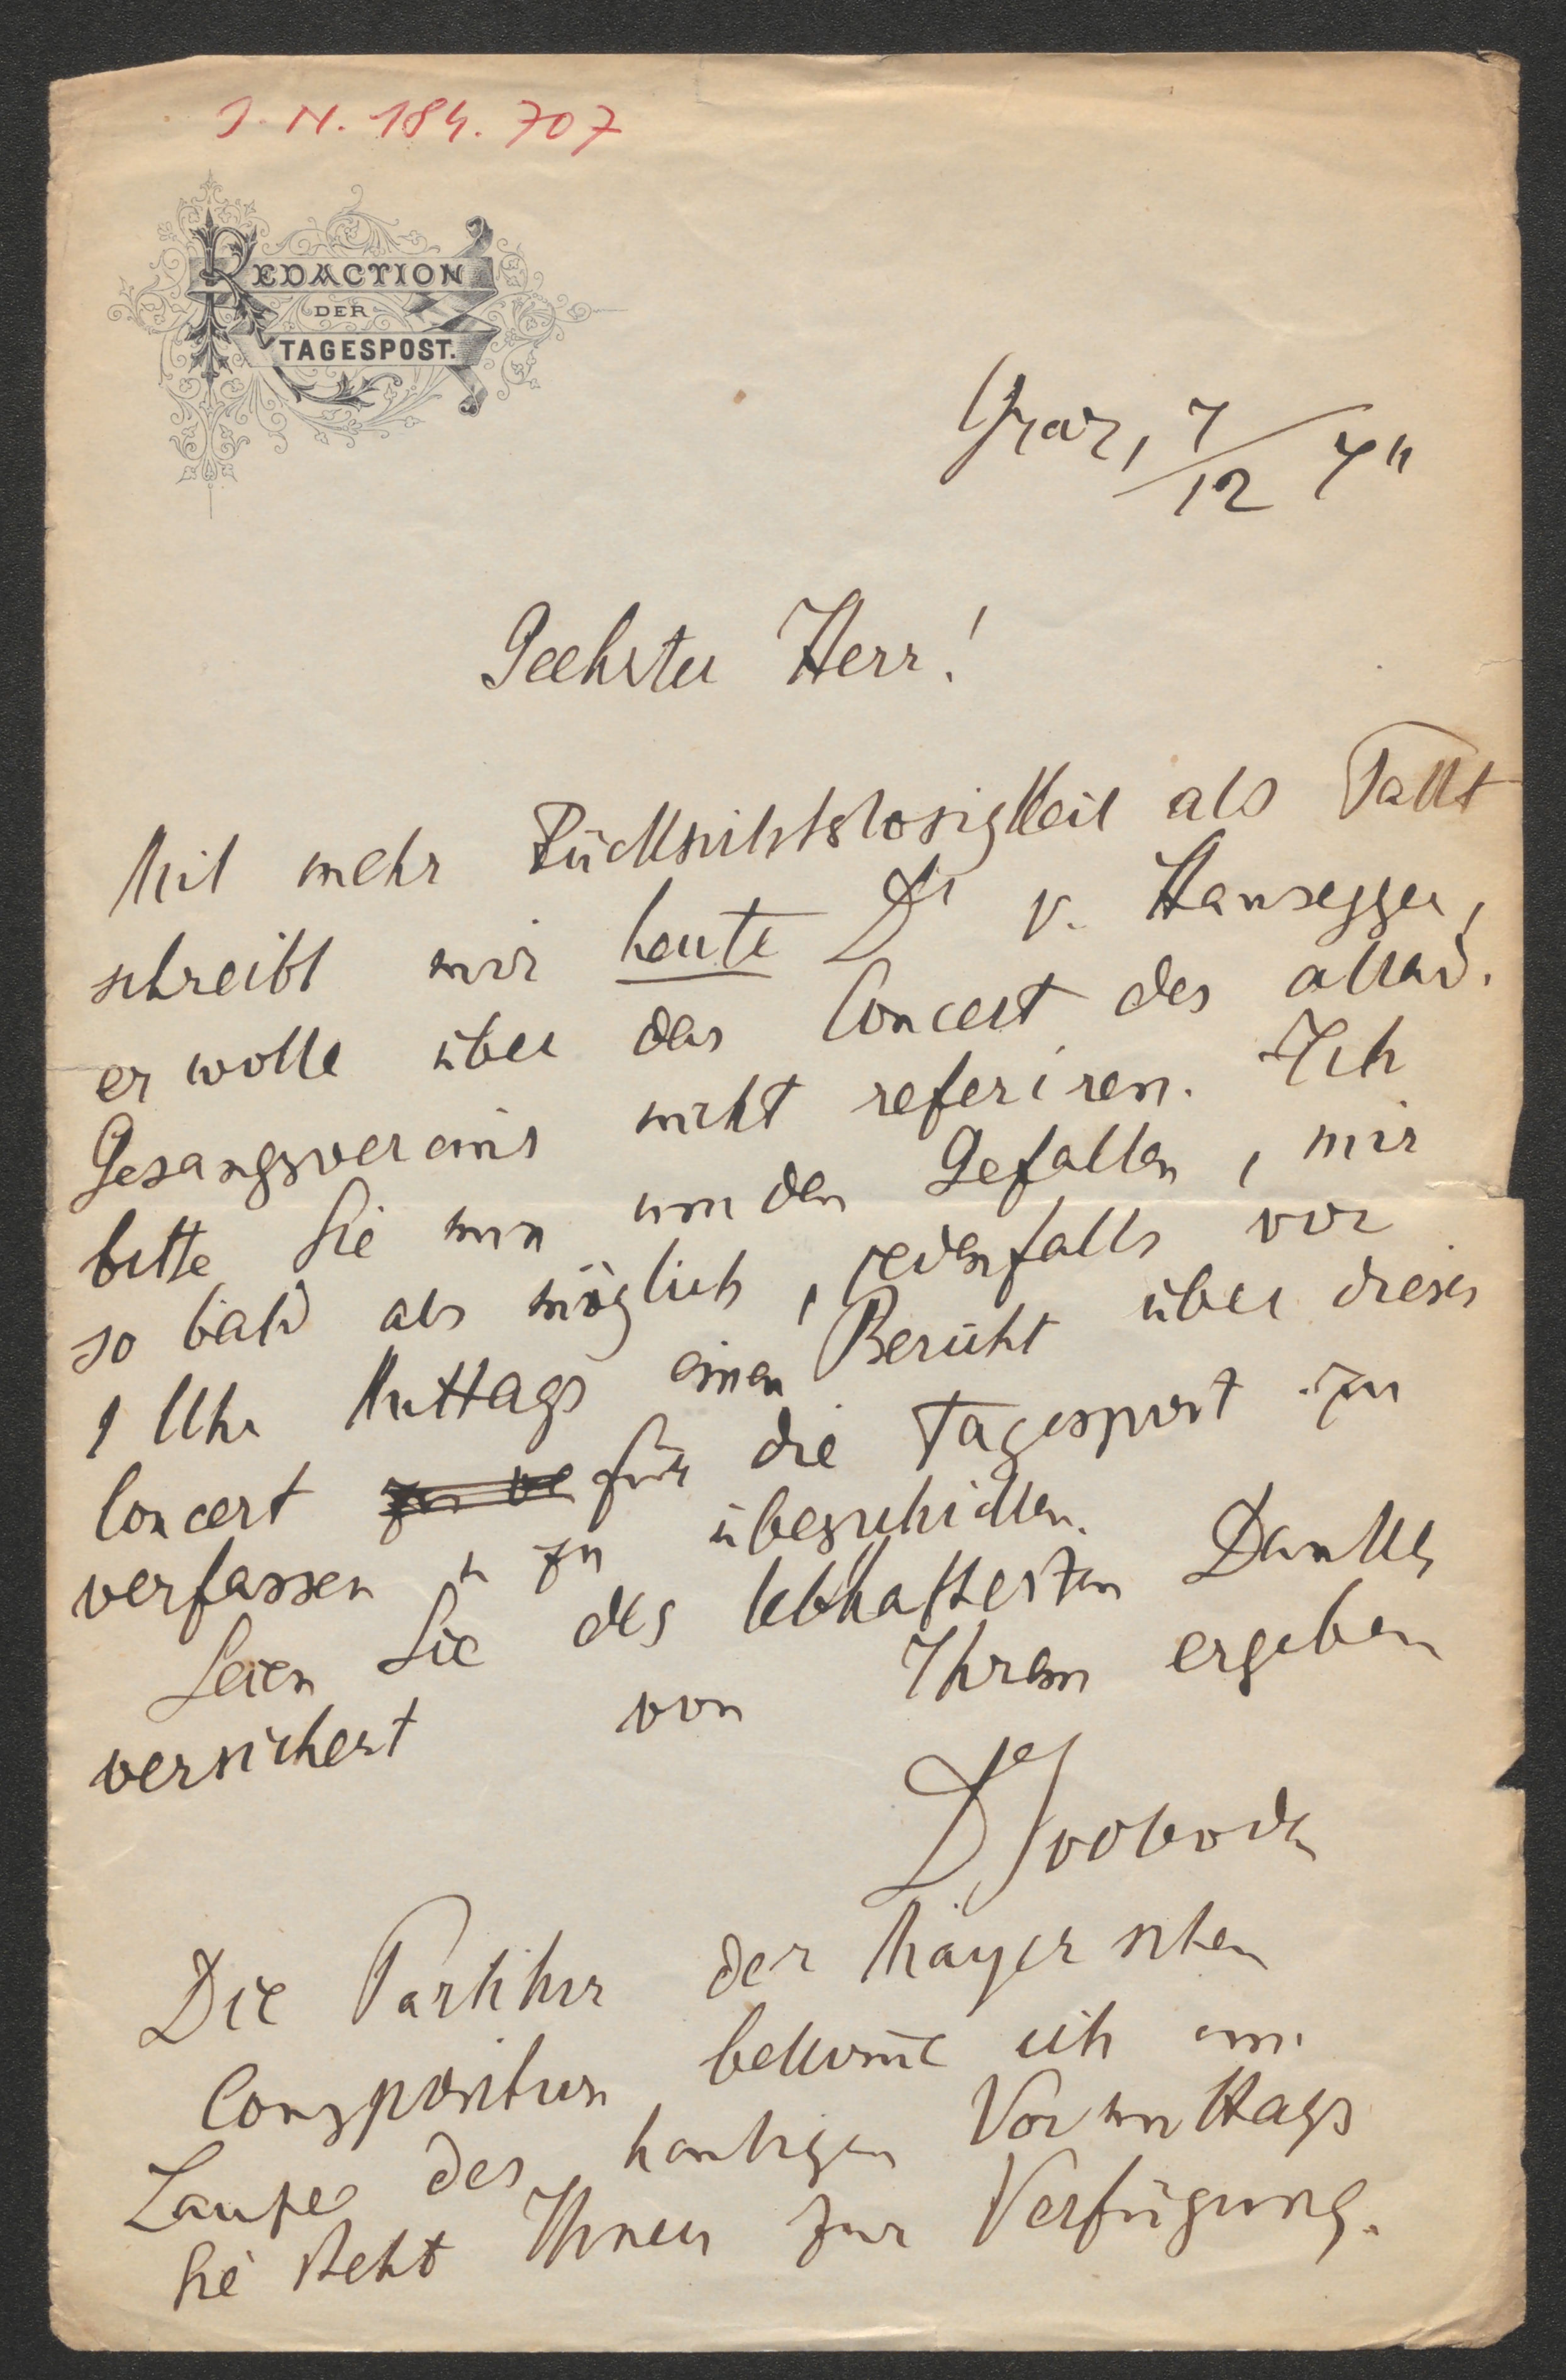 I. N. 184.707
REDACTION
DER
TAGESPOST.
Graz, 7/12
Geehrter Herr!
Mit mehr Rücksichtslosigkeit als Takt
schreibt mir heute Dr v. Hausegger,
er wolle über das Concert des akad.
Gesangsvereins nicht referiren. Ich
bitte Sie nun um den Gefallen, mir
so bald als möglich, jedenfalls vor
1 Uhr Mittags einen Bericht über dieses
Concert zu ve für die Tagespost zu
verfassen u zu überschicken.
Seien Sie des lebhaftesten Dankes
versichert von Ihrem ergeben
Dr Svoboda
Die Partitur der Mayer'schen
Composition bekom̄e ich im
Laufe des heutigen Vormittags
Sie steht Ihnen zur Verfügung.